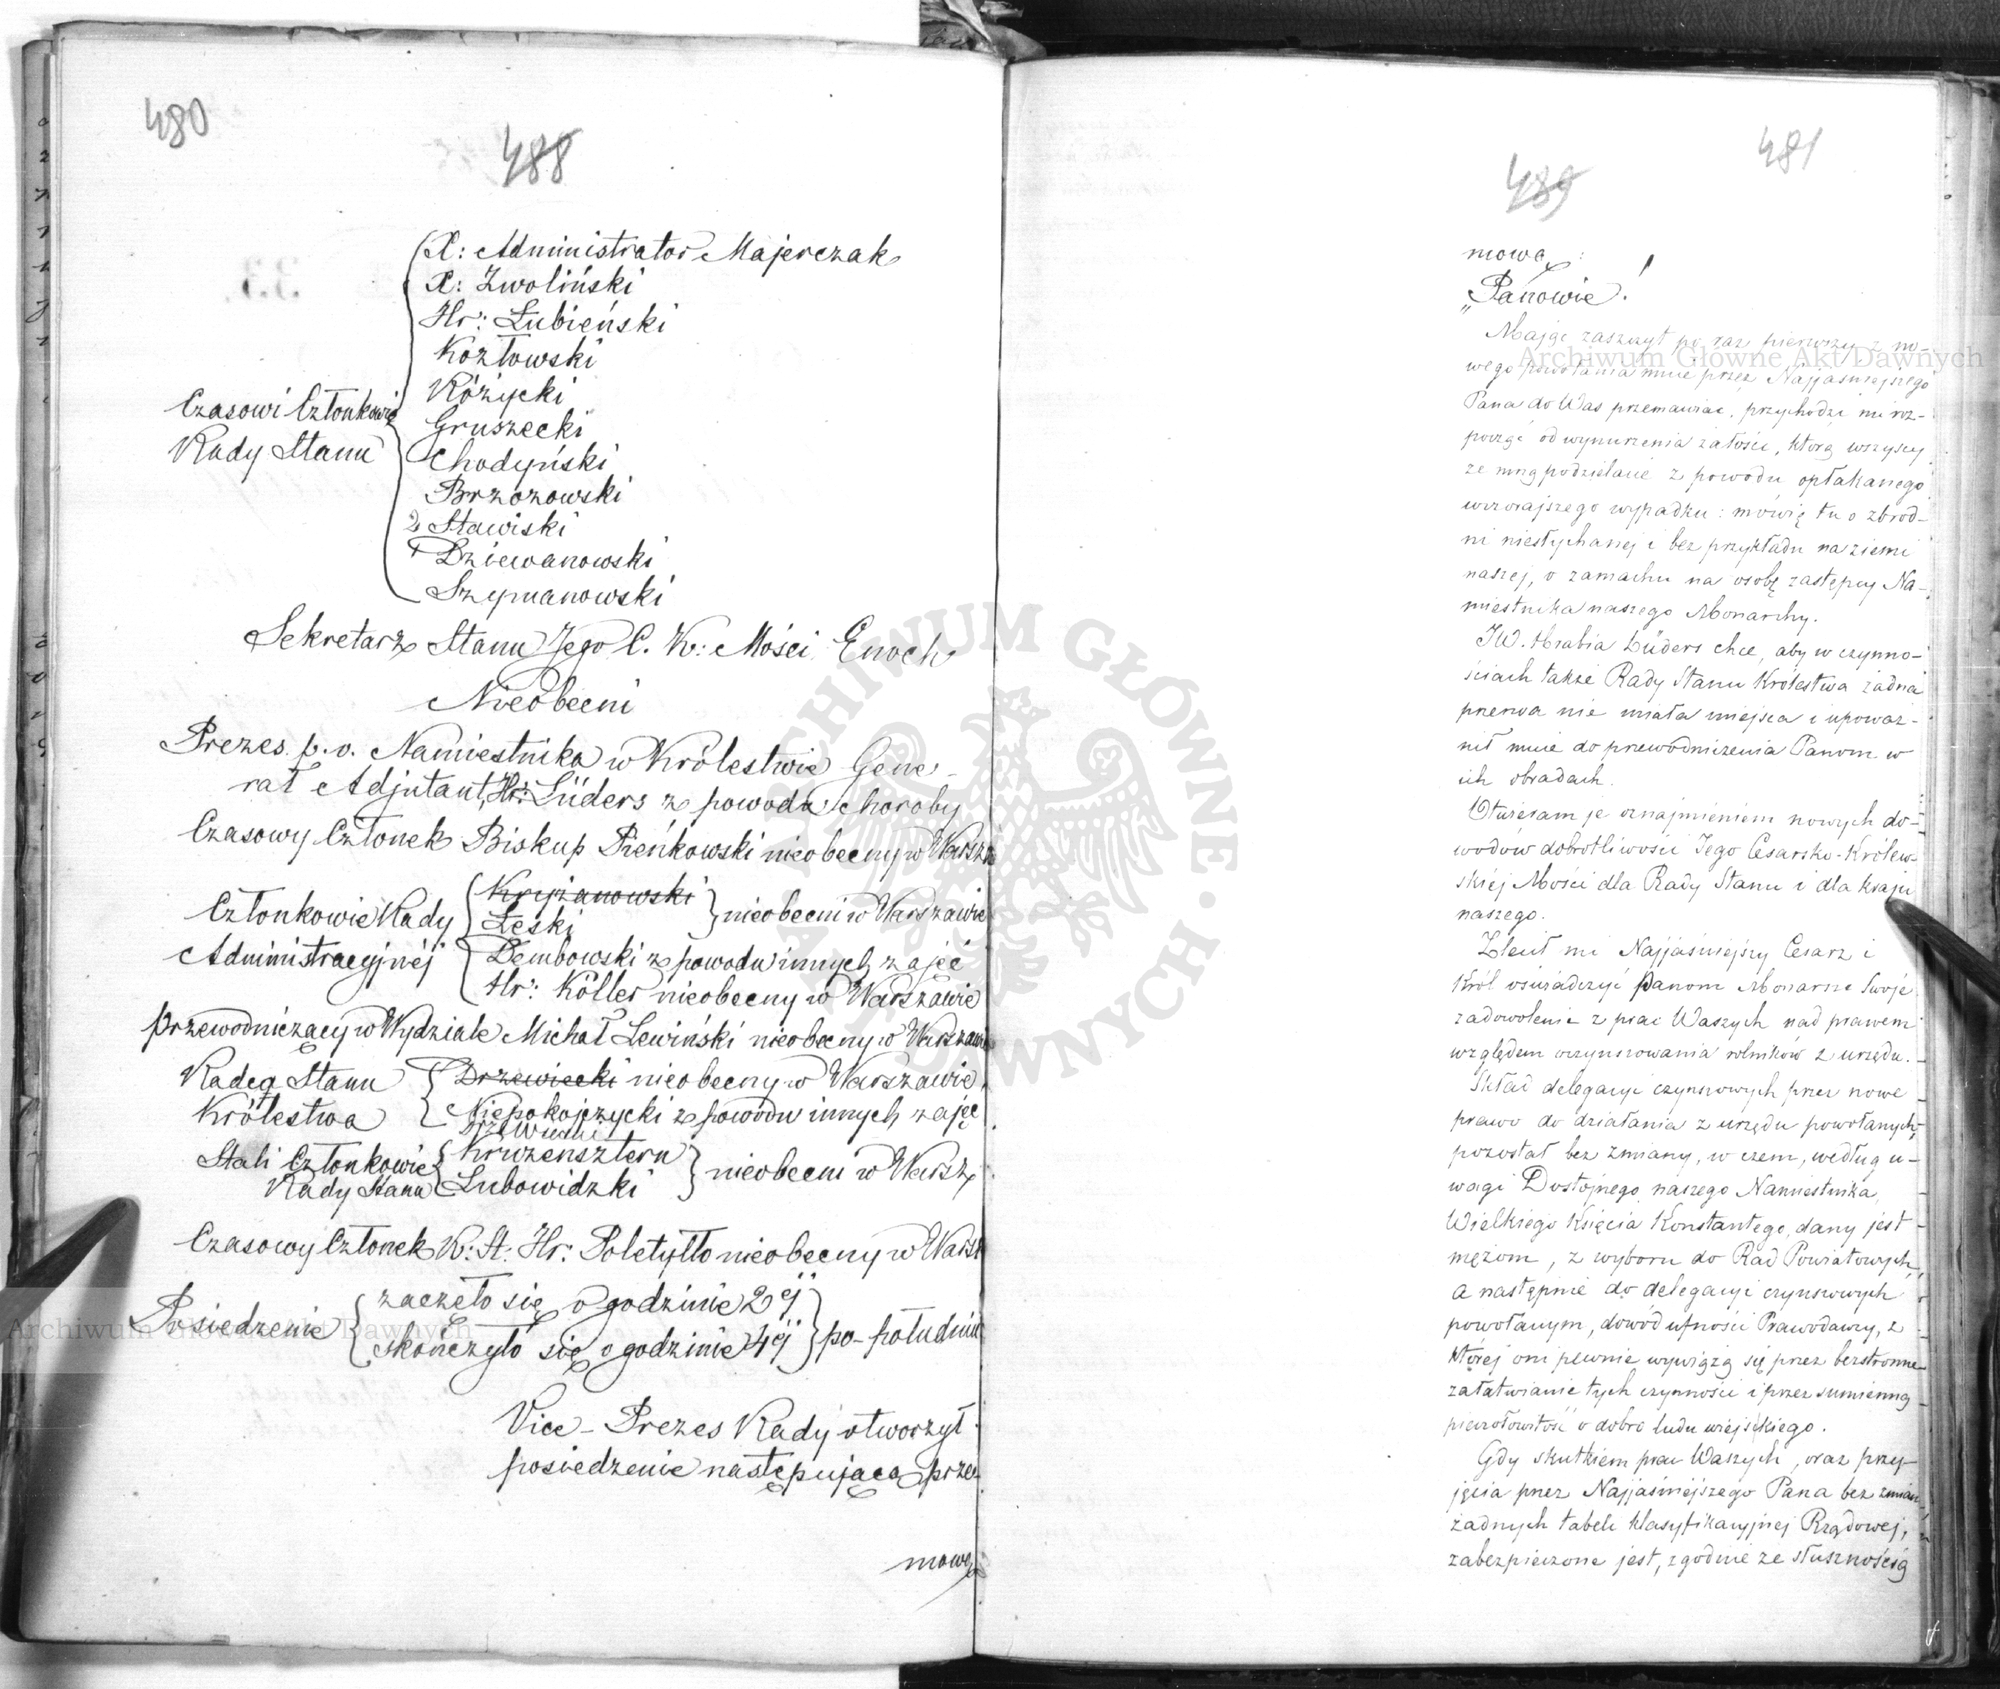 480
488
X: Administrator Majerczak
X: Zwoliński
Hr: Łubieński
Kozłowski
Różycki
Czasowi Członkowie
Rady Stanu
Gruszecki
Chodyński
Brzozowski
2 Stawiski
1 Dziewanowski
Szymanowski
Sekretarz Stanu Jego C. K: Mości Enoch
Nieobecni
Prezes p. o. Namiestnika w Królestwie Gene-
rał Adjutant, Hr: Lüders z powodu choroby
Czasowy Członek Biskup Pieńkowski nieobecny w Warsza
Członkowie Rady
Administracyjnéj
Kryżanowski
Łęski
nieobecni w Warszawie
Dembowski z powodu innych zajęć
Hr: Köller nieobecny w Warszawie
Przewodniczący w Wydziale Michał Lewiński nieobecny w Warszawie
Radcą Stanu
Królestwa
Drzewiecki nieobecny w Warszawie
Niepokojczycki z powodu innych zajęć
Drzewiecki
Stali Członkowie
Rady Stanu
Kruzensztern
Lubowidzki
nieobecni w Warsz
Czasowy Członek R: St: Hr: Poletyłło nieobecny w Warsz
Posiedzenie
zaczęło się o godzinie 2éj
skończyło się o godzinie 4éj
po-południu
Vice-Prezes Rady otworzył
posiedzenie następującą prze-
mową
481
489
mową:
„Panowie!
Mając zaszczyt po raz pierwszy z no-
wego powołania mnie przez Najjaśniejszego
Pana do Was przemawiać, przychodzi mi roz-
począć od wynurzenia żałości, którą wszyscy
ze mną podzielacie z powodu opłakanego
wczorajszego wypadku: mówię tu o zbrod-
ni niesłychanej i bez przykładu na ziemi
naszej, o zamachu na osobę zastępcy Na-
miestnika naszego Monarchy.
JW. Hrabia Lüders chce, aby w czynno-
ściach także Rady Stanu Królestwa żadna
przerwa nie miała miejsca i upoważ-
nił mnie do przewodniczenia Panom w
ich obradach.
Otwieram je oznajmieniem nowych do-
wodów dobrotliwości Jego Cesarsko-Królew-
skiéj Mości dla Rady Stanu i dla kraju
naszego.
Zlecił mi Najjaśniejszy Cesarz i
Król oświadczyć Panom Monarsze Swoje
zadowolenie z prac Waszych nad prawem
względem oczynszowania rolników z urzędu.
Skład delegacyi czynszowych przez nowe
prawo do działania z urzędu powołanych,
pozostał bez zmiany, w czem, według u-
wagi Dostojnego naszego Namiestnika,
Wielkiego Księcia Konstantego, dany jest
mężom, z wyboru do Rad Powiatowych,
a następnie do delegacyi czynszowych
powołanym, dowód ufności Prawodawcy, z
której oni pewnie wywiążą się przez bezstronne
załatwianie tych czynności i przez sumienną
pieczołowitość o dobro ludu wiejskiego.
Gdy skutkiem prac Waszych, oraz przy-
jęcia przez Najjaśniejszego Pana bez zmian
żadnych tabeli klasyfikacyjnej Rządowej,
zabezpieczone jest, zgodnie ze słusznością
Archiwum Główne Akt Dawnych
Archiwum Główne Akt Dawnych
ARCHIWUM GŁÓWNE AKT DAWNYCH